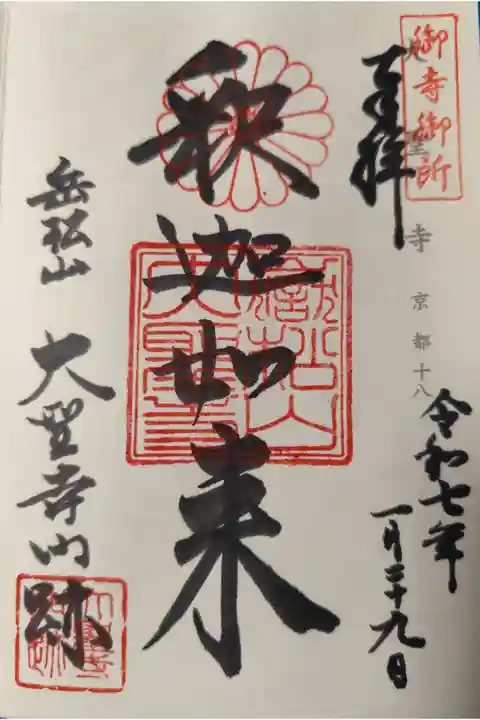 御寺御所
大聖寺 京都十八
奉拝
令和七年
一月二十九日
釈迦如来
岳松山 大聖寺門跡